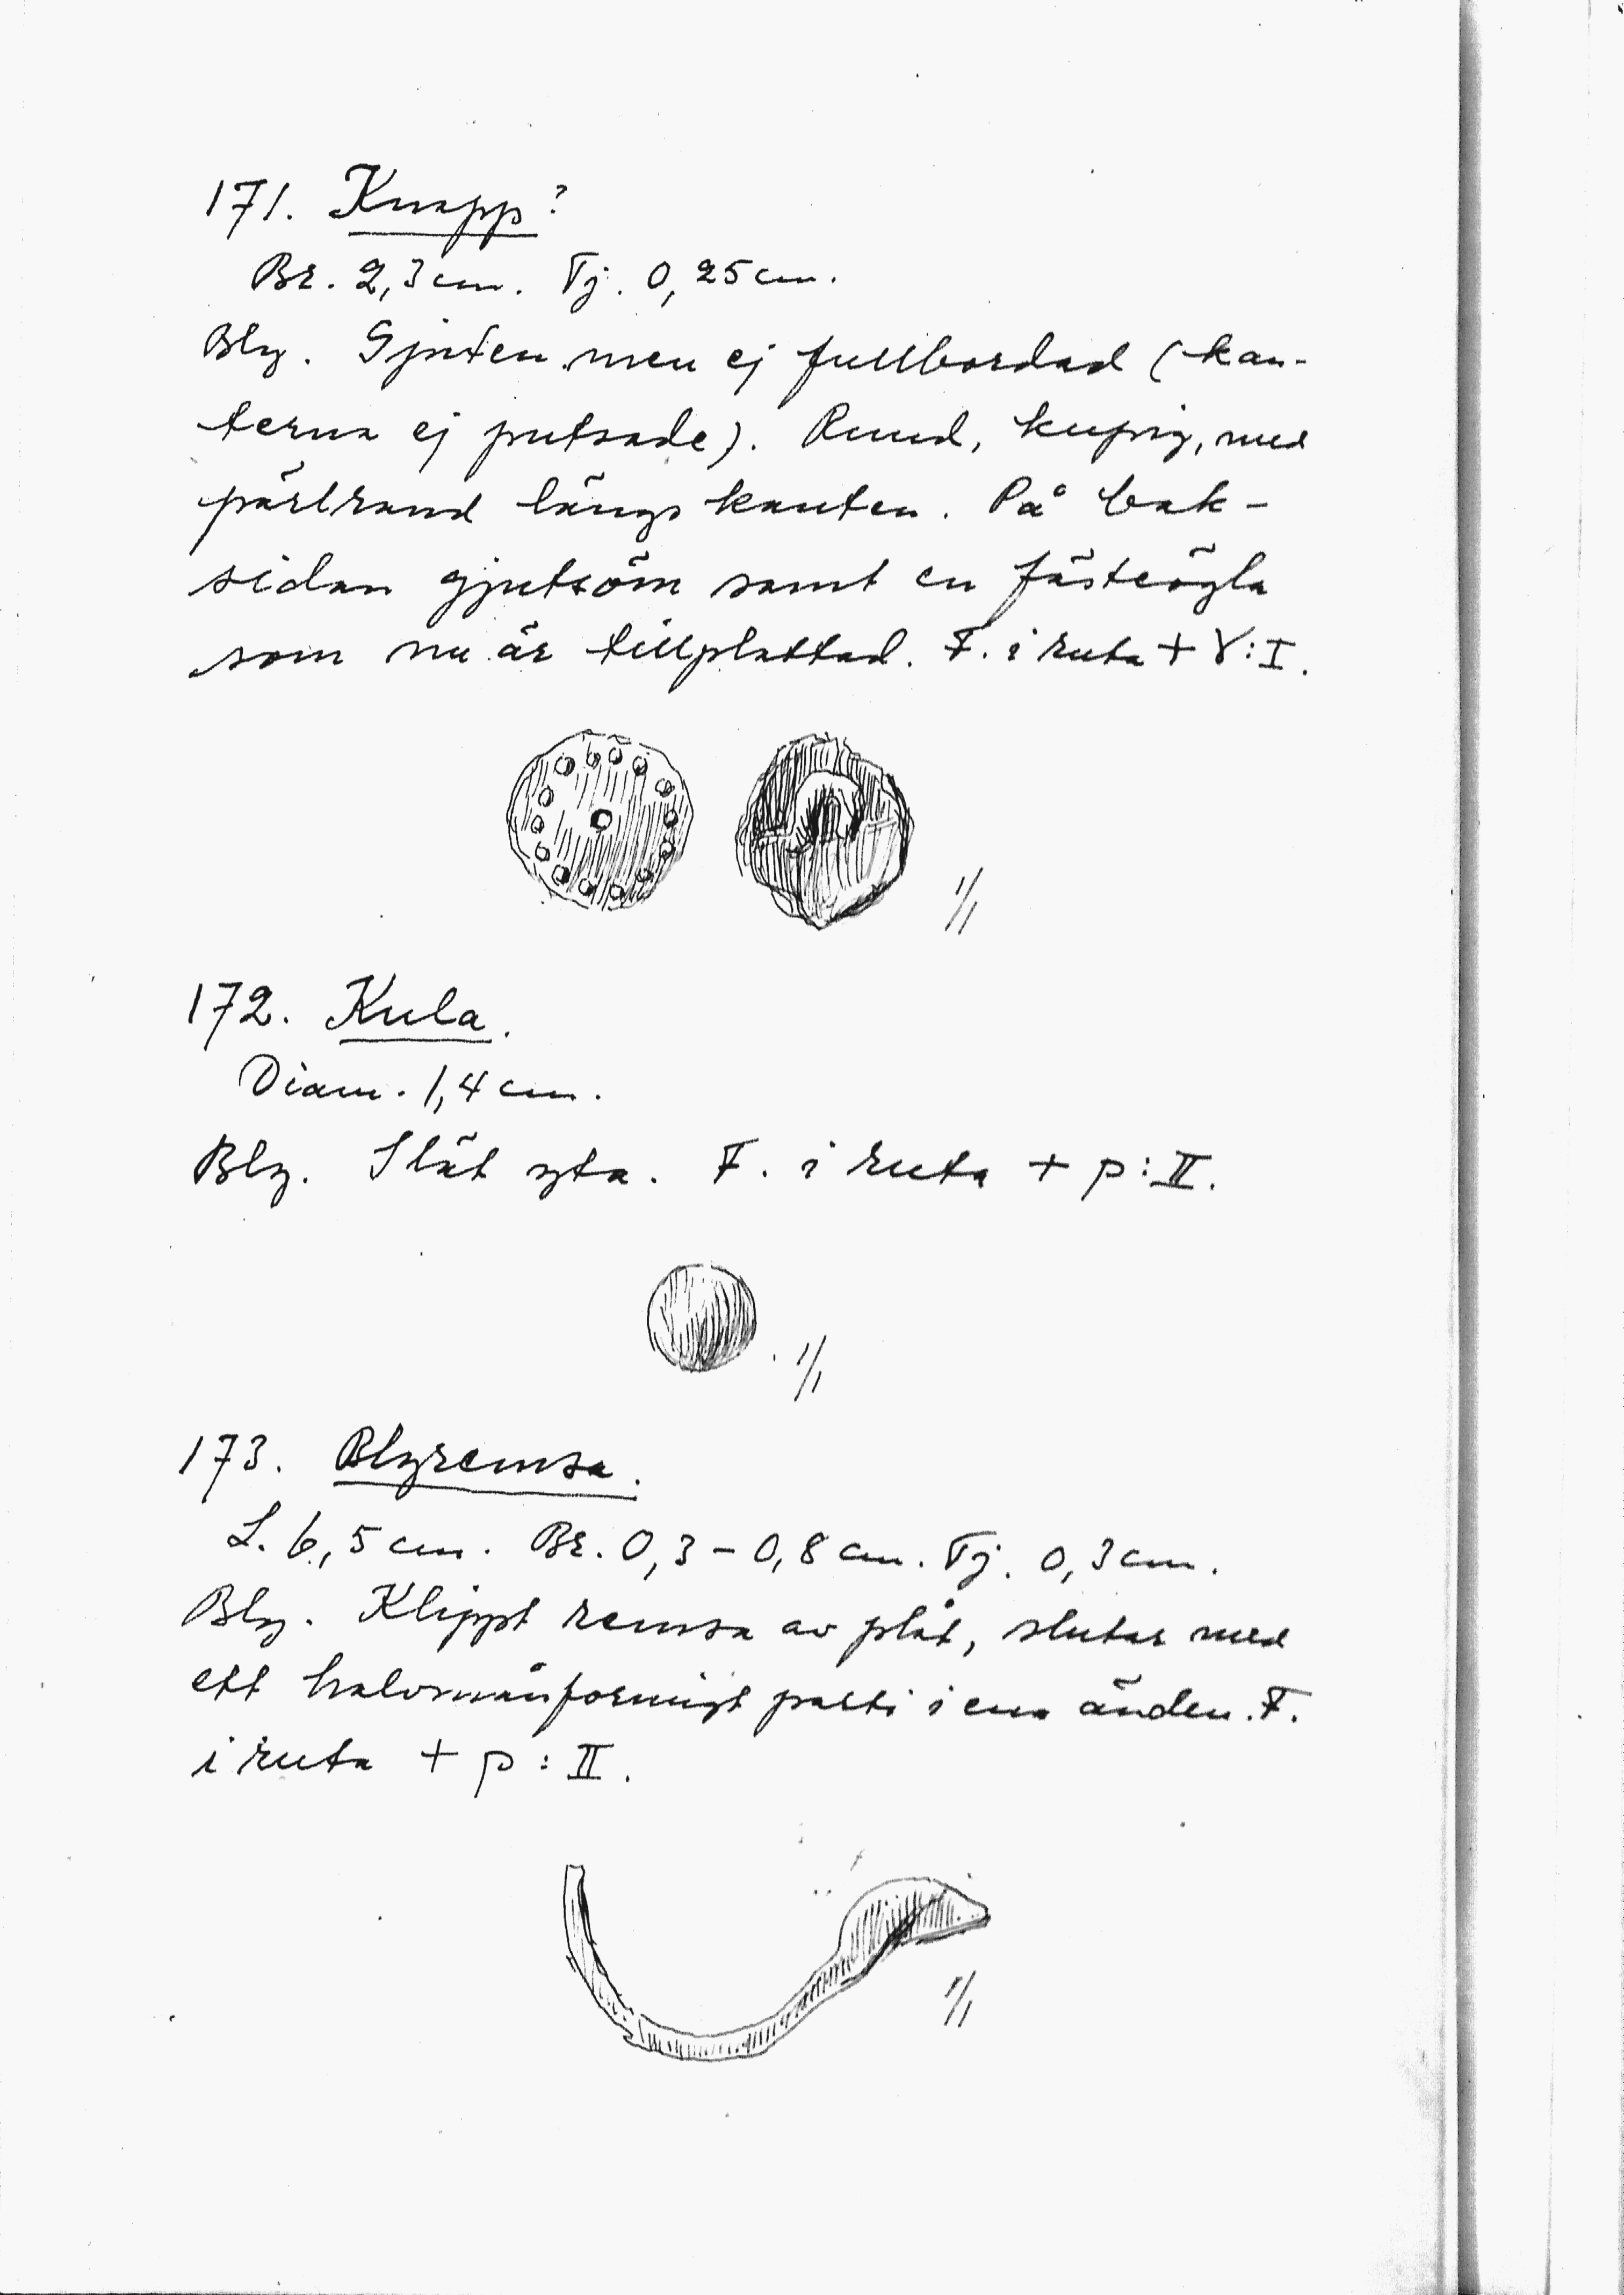 171. Knapp?
Br. 2,3 cm. Tj. 0,25 cm.
Bly. Gjuten men ej fullbordad (kan-
terna ej putsade). Rund, kupig, med
pärlrand längs kanten. På bak-
sidan gjutsöm samt en fästeögla
som nu är tillplattad. F. i ruta + γ:I.
1/1
172. Kula.
Diam. 1,4 cm.
Bly. Slät yta. F. i ruta + p:II.
1/1
173. Blyremsa.
L. 6,5 cm. Br. 0,3 – 0,8 cm. Tj. 0,3 cm.
Bly. Klippt remsa av plåt, slutar med
ett halvmånformigt parti i ena änden. F.
i ruta + p:II.
1/1